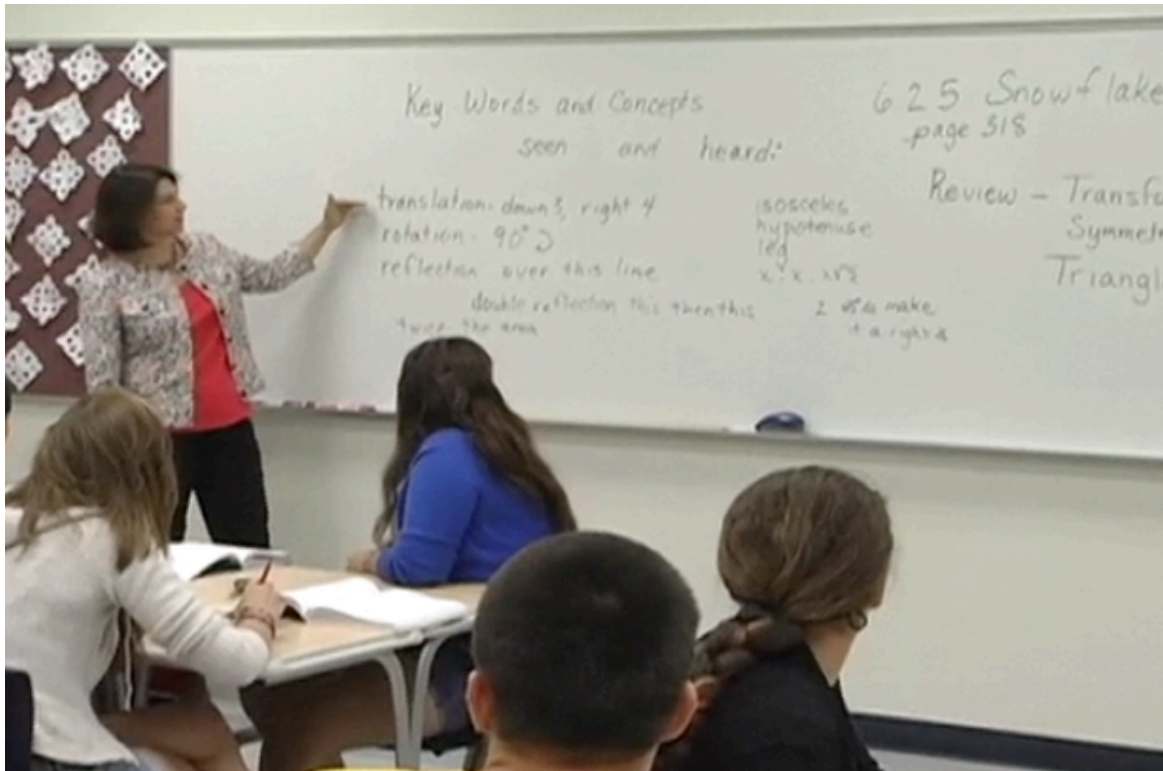 Key Words and Concepts
seen and heard:
translation: down 3, right 4
rotation - 90°
reflection over this line
double reflection this then this
twice the area
isosceles
hypotenuse
leg
2 make
a right
6 2 5 Snowflake
page 318
Review - Transfo
Symmet
Triangl